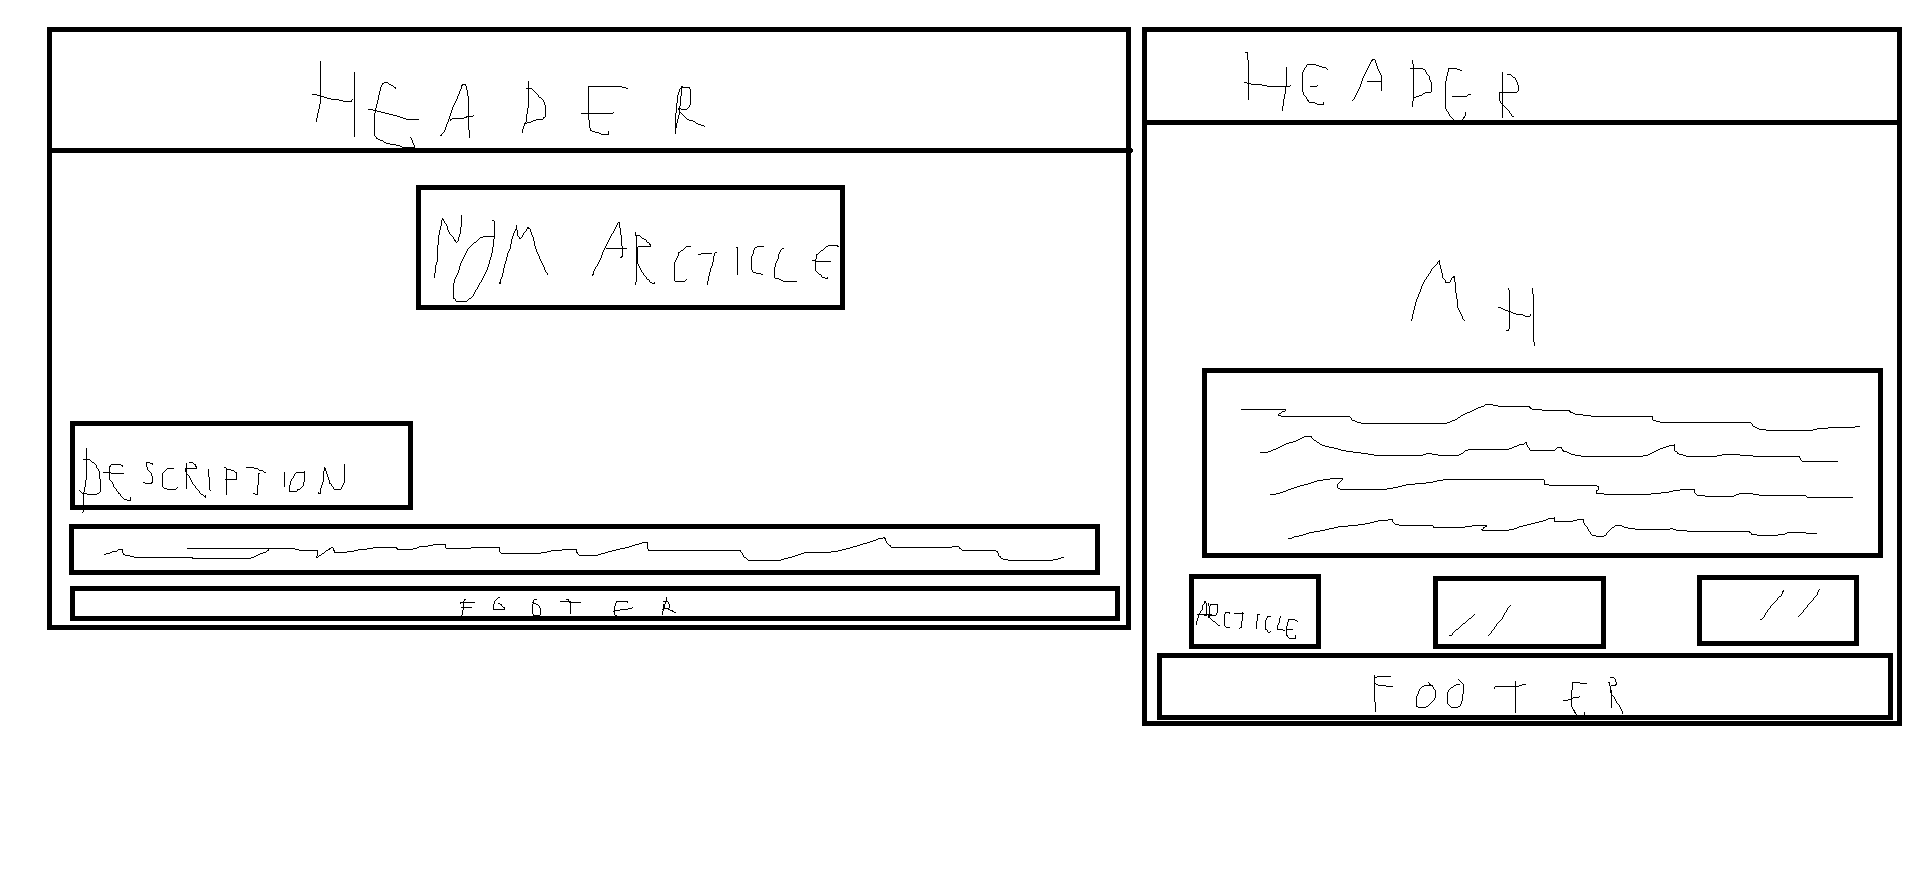 HEADER
NOM ARCTICLE
DESCRIPTION
FOOTER
HEADER
MH
ARCTICLE
//
//
FOOTER